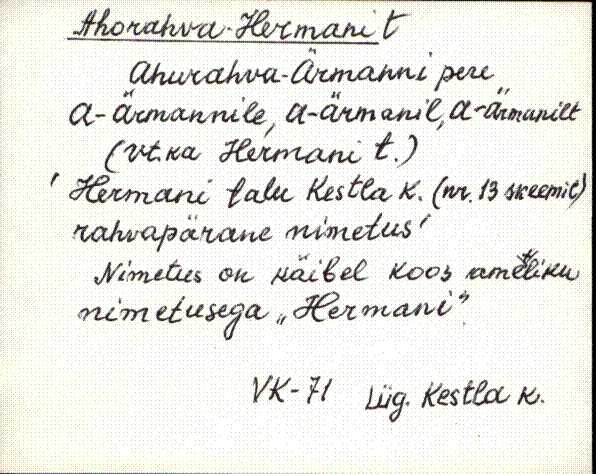 Ahorahva-Hermani t
Ahurahva-Ärmanni pere
A-ärmannile, A-ärmanil, A-ärmanilt
(vt. ka Hermani t.)
'Hermani talu Kestla k. (nr. 13 skeemil)
rahvapärane nimetus'
Nimetus on käibel koos ametliku
nimetusega „Hermani”
VK-71 Lüg. Kestla k.